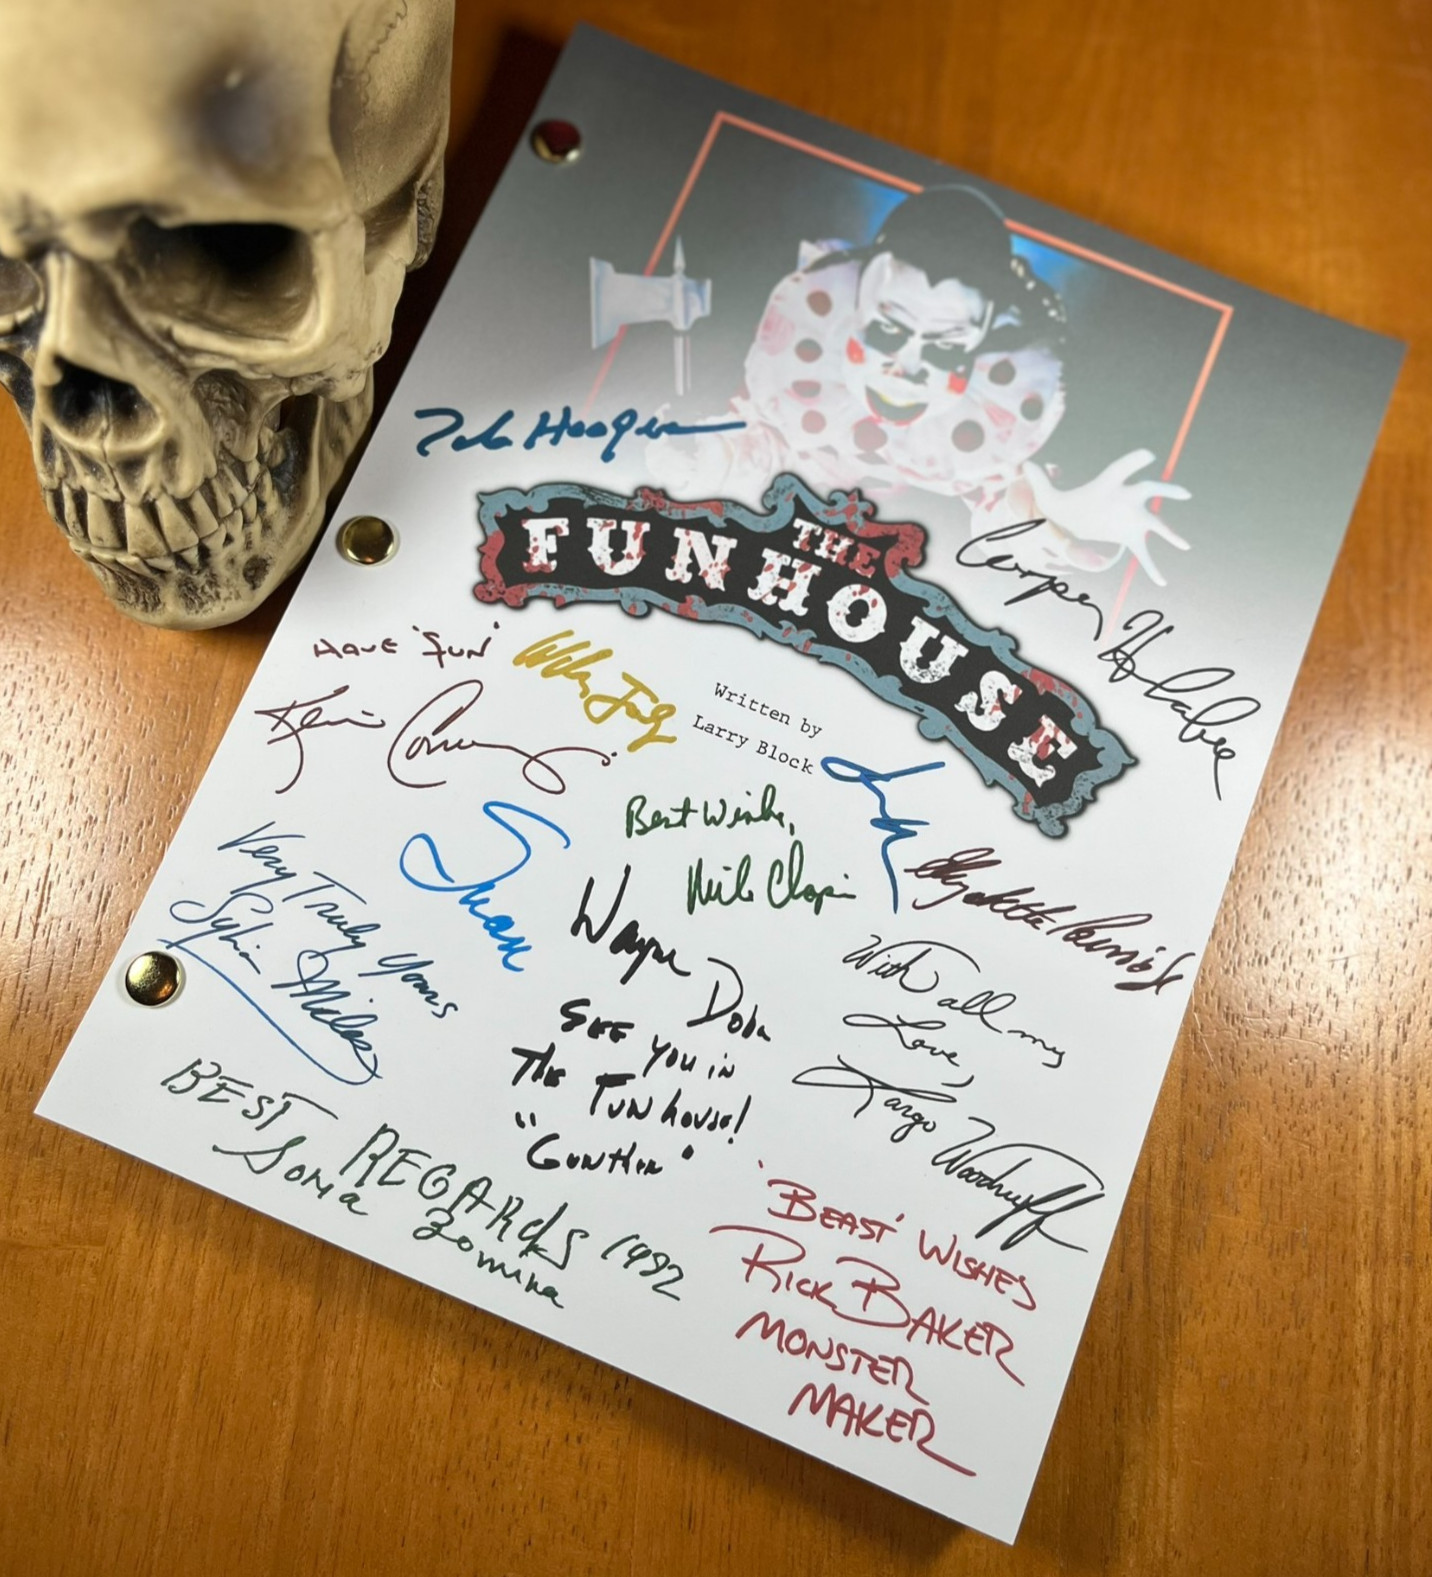 Tobe Hooper
THE
FUNHOUSE
Cooper Huckabee
HAVE 'FUN'
Kevin Conway
Written by
Larry Block
Best Wishes,
Miles Chapin
Elizabeth Berridge
Very Truly Yours
Sylvia Miles
Wayne Doba
SEE YOU in
THE FUNhouse!
"GUNTHER"
With all my
Love,
Largo Woodruff
BEST REGARdS 1992
Sonia Zomina
'BEAST' WISHES
RICK BAKER
MONSTER
MAKER